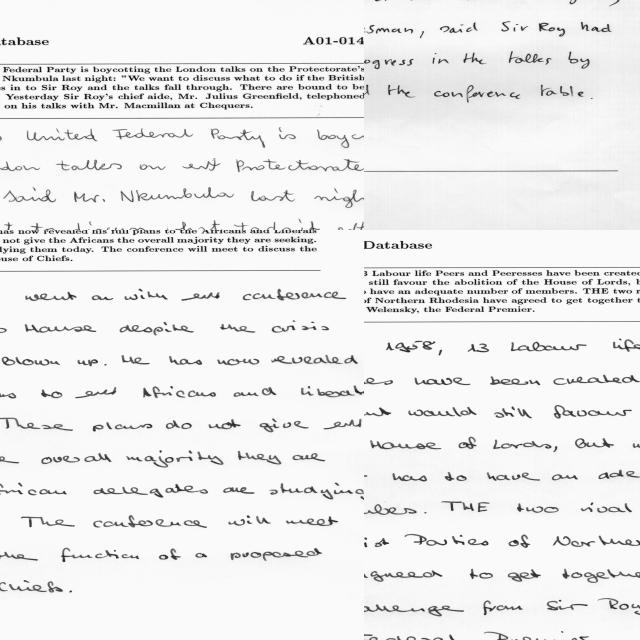 tabase A01-014
Federal Party is boycotting the London talks on the Protectorate's
Nkumbula last night: "We want to discuss what to do if the British
s in to Sir Roy and the talks fall through. There are bound to be
Yesterday Sir Roy's chief aide, Mr. Julius Greenfield, telephoned
on his talks with Mr. Macmillan at Chequers.
United Federal Party is boyc
don talks on Protectorate
Said Mr. Nkumbula last nigh
sman, said Sir Roy had
ogress in the talks by
the conference table.
has now revealed his full plans to the Africans and Liberals
not give the Africans the overall majority they are seeking.
lying them today. The conference will meet to discuss the
use of Chiefs.
went on with conference
House despite the crisis
Blown up. He has now revealed
to Africans and Liberal
These plans do not give
overall majority they are
frican delegates are studying
The conference will meet
the function of a proposed
Chiefs.
Database
3 Labour life Peers and Peeresses have been created
still favour the abolition of the House of Lords, b
have an adequate number of members. THE two r
of Northern Rhodesia have agreed to get together t
Welensky, the Federal Premier.
1958, 13 Labour life
es have been created
nt would still favour
House of Lords, but w
has to have an ade
mbers. THE two rival
ist Parties of Northe
agreed to get togethe
allenge from Sir Roy
Federal Premier